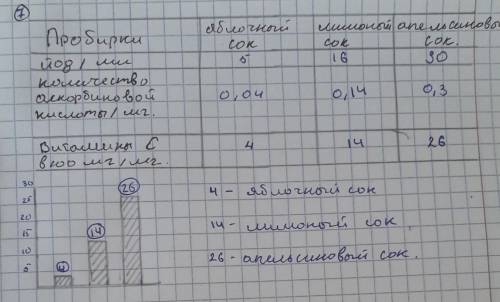 7
Пробирки яблочный сок лимоный сок апельсиновый сок.
йод/мл 5 16 30
количество аскорбиновой кислоты/мг. 0,04 0,14 0,3
Витамины С в 100 мг/мг. 4 14 26
30
25
20
15
10
5
4
14
26
4 - яблочный сок
14 - лимоный сок.
26 - апельсиновый сок.